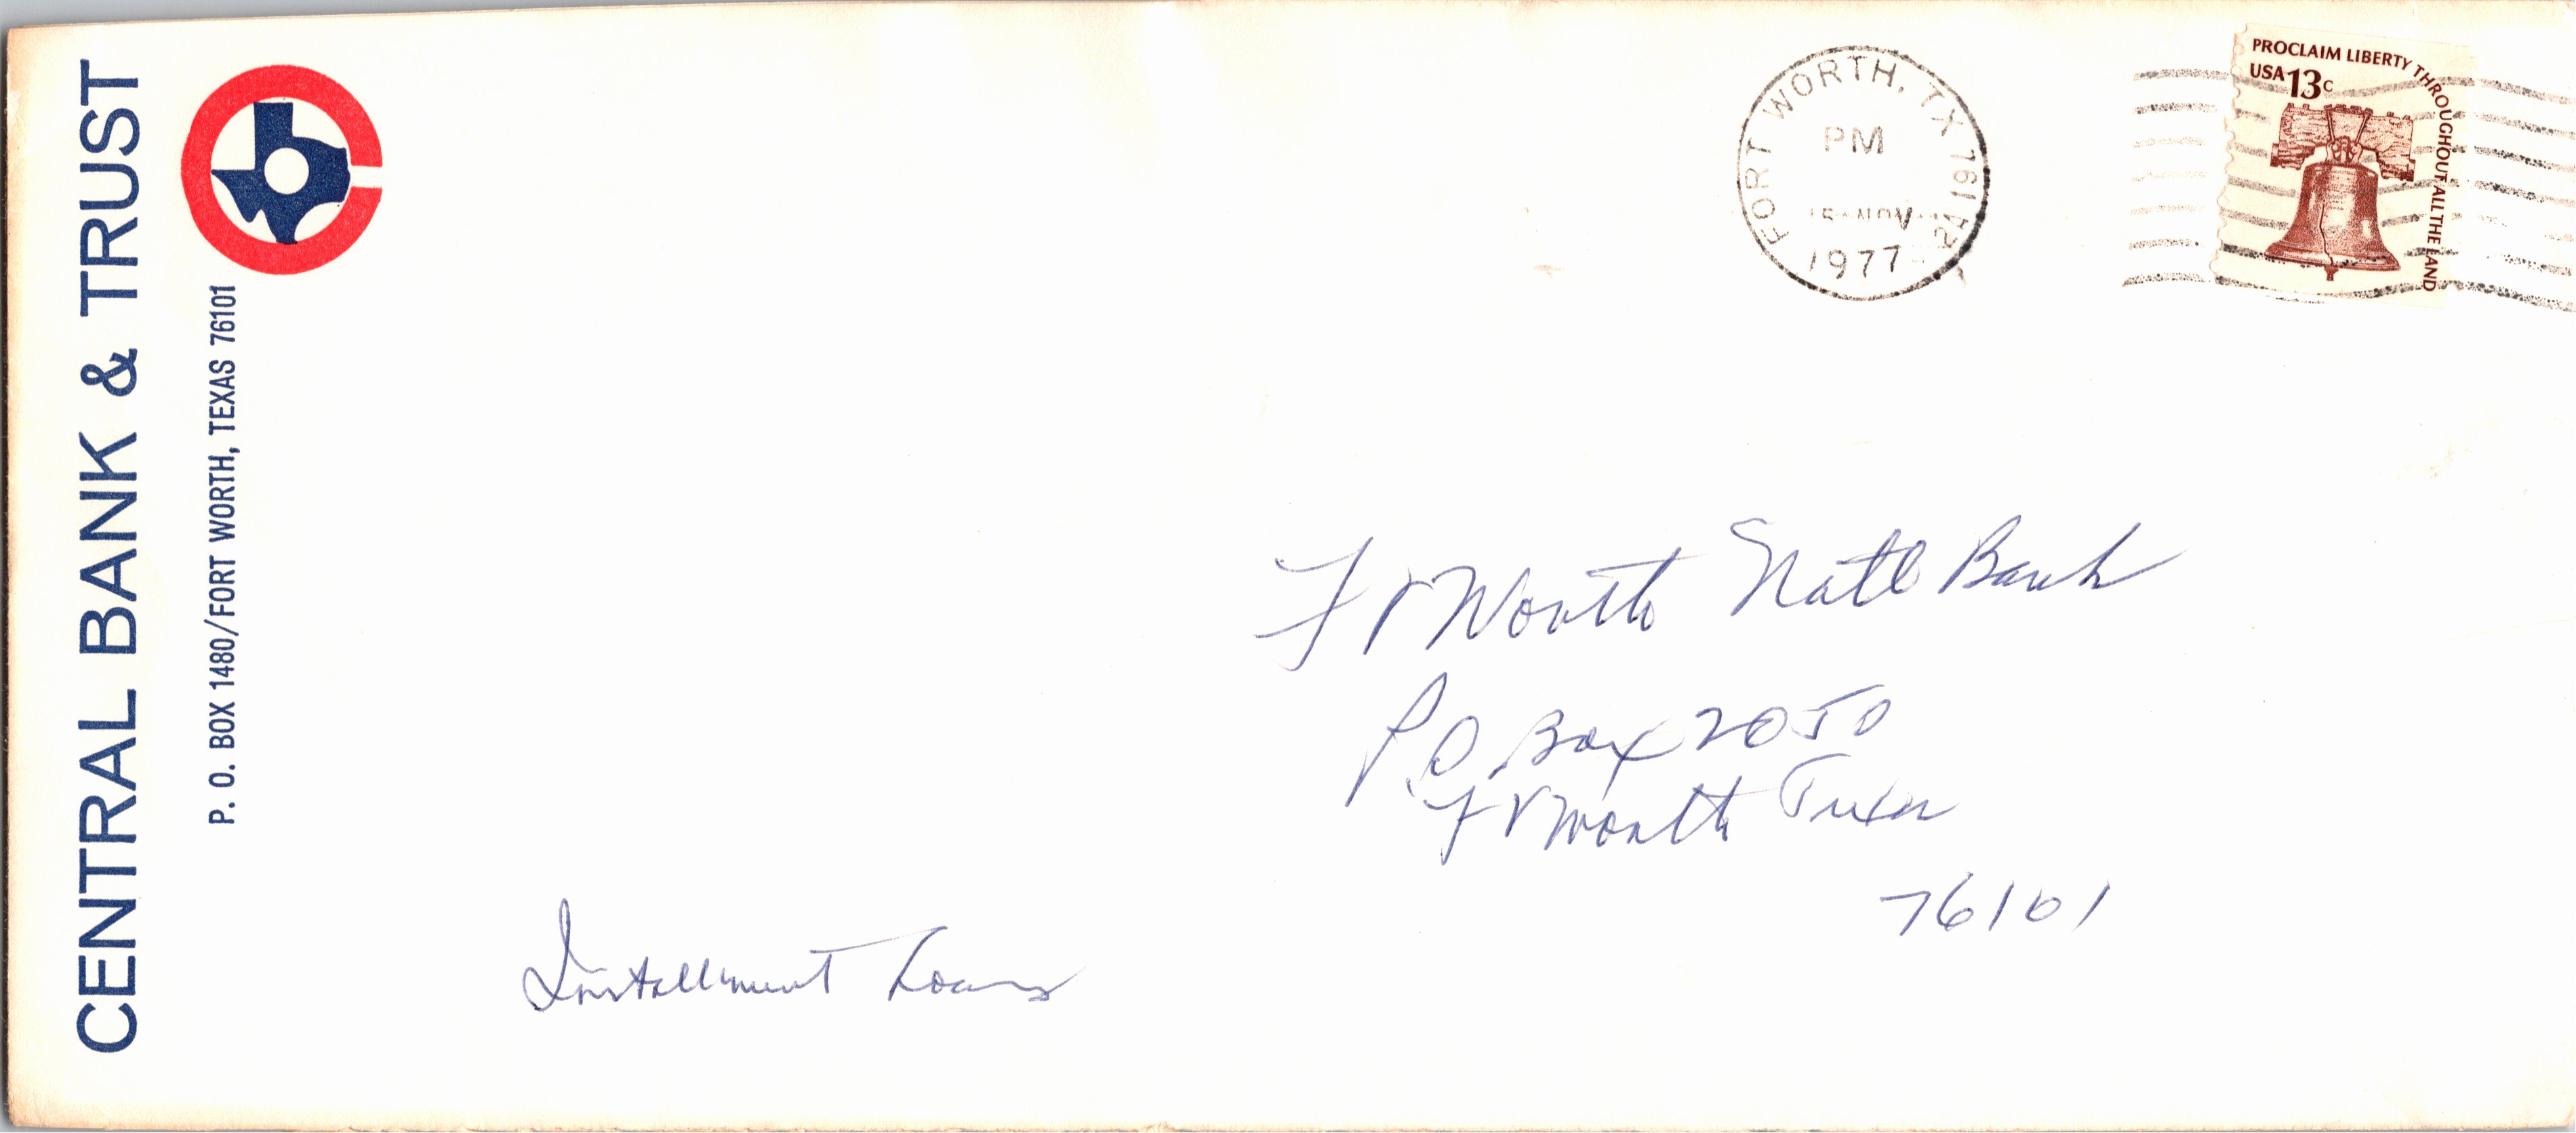 CENTRAL BANK & TRUST
P. O. BOX 1480/FORT WORTH, TEXAS 76101
FORT WORTH, TX 761
PM
NOV
1977
PROCLAIM LIBERTY THROUGHOUT ALL THE LAND
USA 13c
Ft Worth Natl Bank
P.O. Box 2050
Ft Worth Texas
76101
Installment Loans